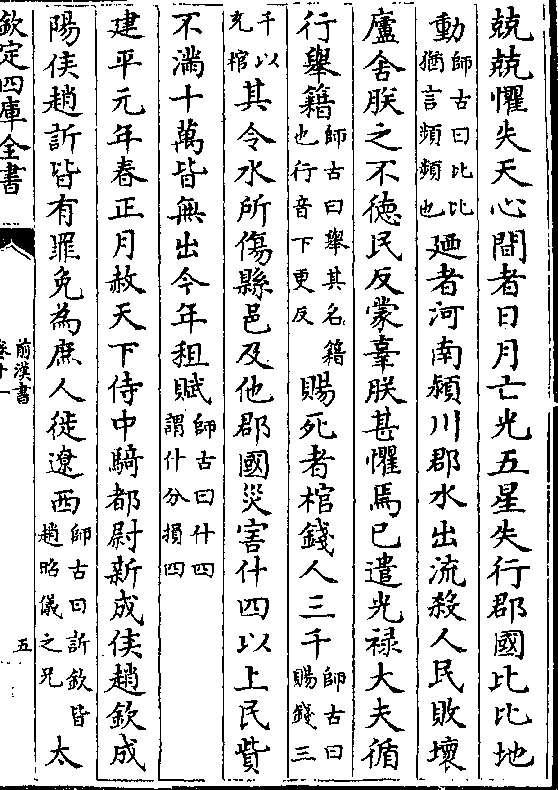 兢兢懼失天心間者日月亡光五星失行郡國比比地
動師古曰比比猶言頻頻也廼者河南潁川郡水出流殺人民敗壞
廬舍朕之不德民反蒙辜朕甚懼焉已遣光禄大夫循
行舉籍師古曰舉其名籍也行音下更反賜死者棺錢人三千師古曰賜錢三
千以充棺其令水所傷縣邑及他郡國災害什四以上民貲
不滿十萬皆無出今年租賦師古曰什四謂什分損四
建平元年春正月赦天下侍中騎都尉新成侯趙欽成
陽侯趙訢皆有罪免為庶人徙遼西師古曰訢欽皆趙昭儀之兄太
欽定四庫全書
前漢書
卷十一
五